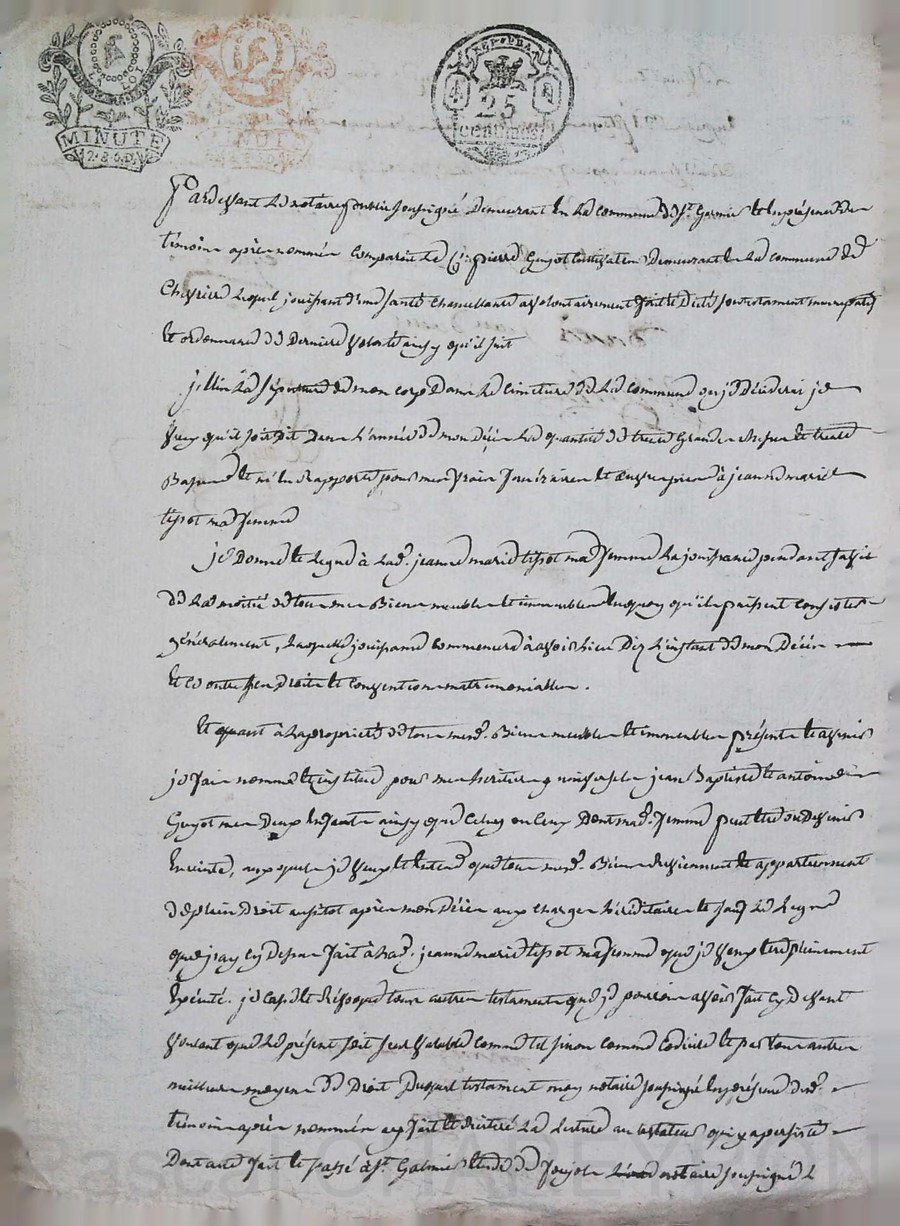 MINUTE
REP. FRA.
25
centimes
Pardevant Le notaire public soussigné Demeurant En La commune de St. Galmier Et En présence des
témoins après nommés comparait Le Cen. pierre Guyot Cultivateur Demeurant En La commune de
Chevrier Lequel jouissant d'une santé chancellante a volontairement fait Et Dicté son testament nuncupatif
Et ordonnance de Derniere volonté ainsy qu'il suit
j'Ellis La sépulture de mon corps Dans Le Cimetiere de La commune ou je Décéderai je
veux qu'il soit Dit Dans L'année de mon Décès La quantité de trente Grandes Messes Et trente
Basses Et m'En Rapporte pour mes frais funéraires Et œuvres pies à jeanne marie
tissot ma femme
je Donne Et Legue à Lad. jeanne marie tissot ma femme La jouissance pendant sa vie
de La moitié de tous mes Biens meubles Et immeubles En quoy qu'ils puissent consister
généralement, Laquelle jouissance commencera à avoir Lieu Dez L'instant de mon Décès
Et ce outre ses Droits Et conventions matrimoniales.
Et quant à La propriété de tous mesd. Biens meubles Et immeubles présents Et avenir
je fais nomme Et institue pour mes héritiers universels jean Baptiste Et antoine
Guyot mes Deux Enfants ainsy que Celuy ou Ceux Dont mad. femme peut Etre ou Devenir
Enceinte, auxquels je veux Et Entend que tous mesd. Biens reviennent Et appartiennent
de plein Droit aussitot après mon Décès aux charges héréditaires Et sauf Le Legue
que j'ay cy Dessus fait à Lad. jeanne marie tissot ma femme que je veux Etre pleinement
Exécuté. je Casse Et Révoque tous autres testaments que je pourrois avoir fait cy devant
voulant que Le présent soit seul valable comme tel sinon comme Codicile Et par tous autres
meilleurs moyens de Droit Duquel testament moy notaire soussigné En présence desd.
témoins après nommés ay fait Et Réitéré La Lecture au testateur qui y a persisté
Dont acte fait Et passé à St. Galmier Etude de notaire soussigné L